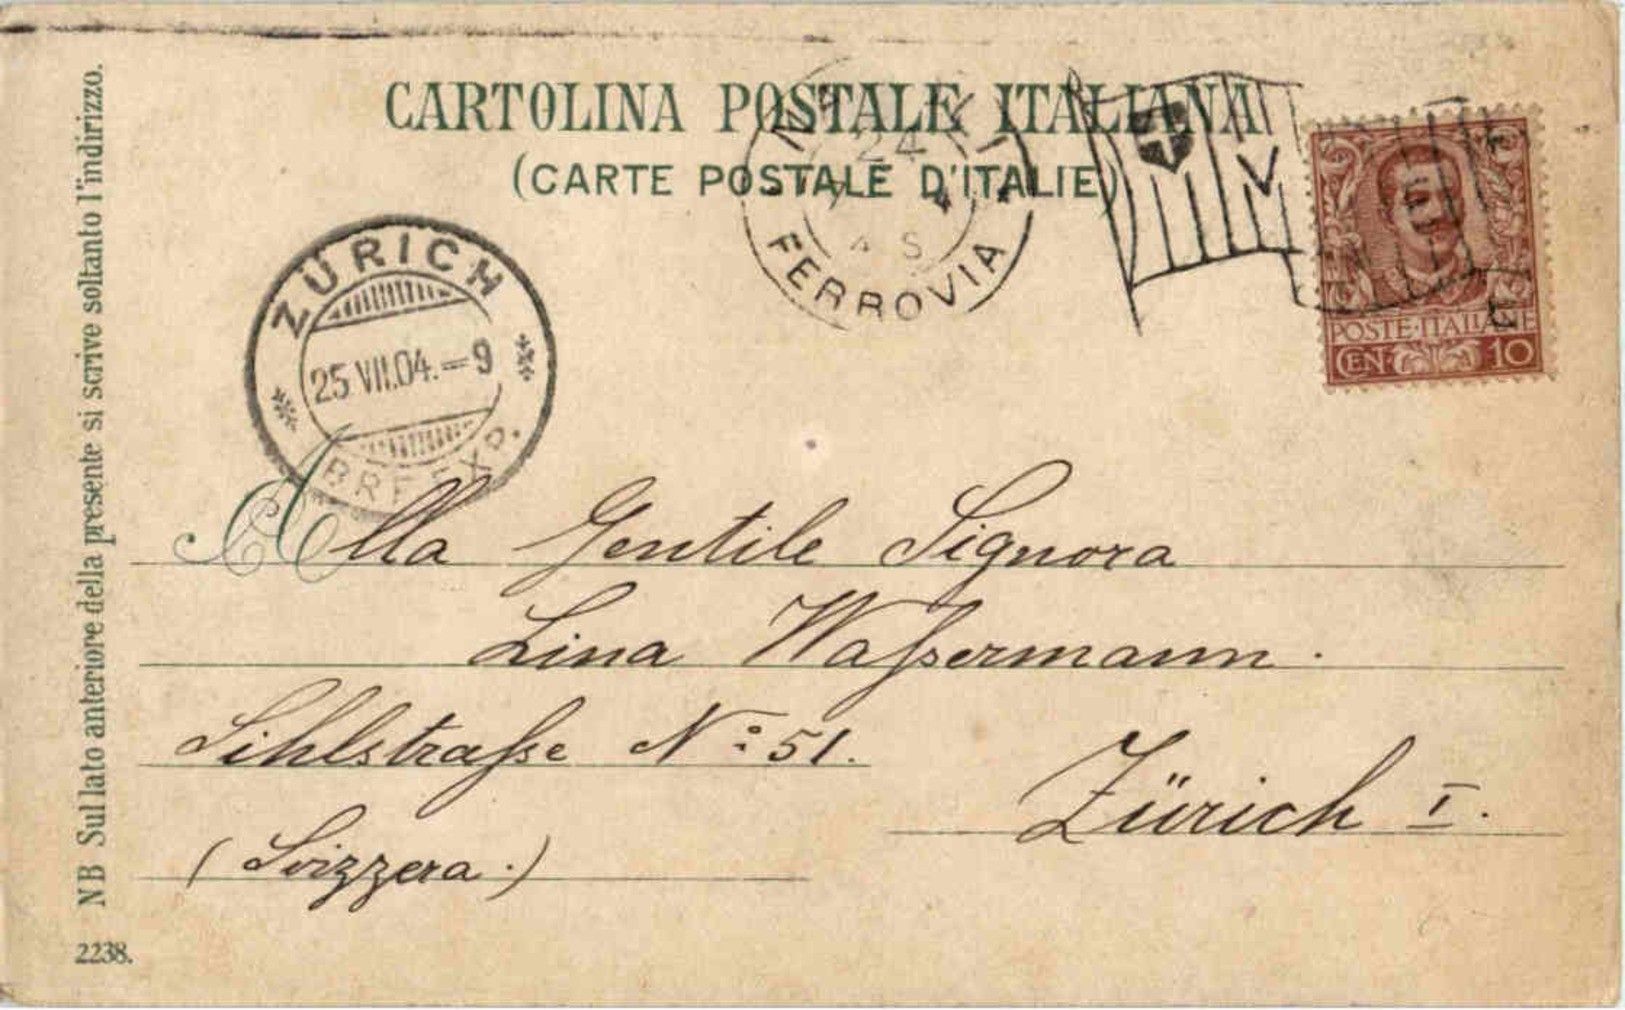 CARTOLINA POSTALE ITALIANA
(CARTE POSTALE D'ITALIE)
24
FERROVIA
V
POSTE·ITALIANE
CEN· 10
ZÜRICH
25 VII.04.=9
BRF. EXP.
Alla Gentile Signora
Lina Waſsermann.
Sihlstraſse No: 51.
Zürich I.
(Svizzera.)
NB Sul lato anteriore della presente si scrive soltanto l'indirizzo.
2238.